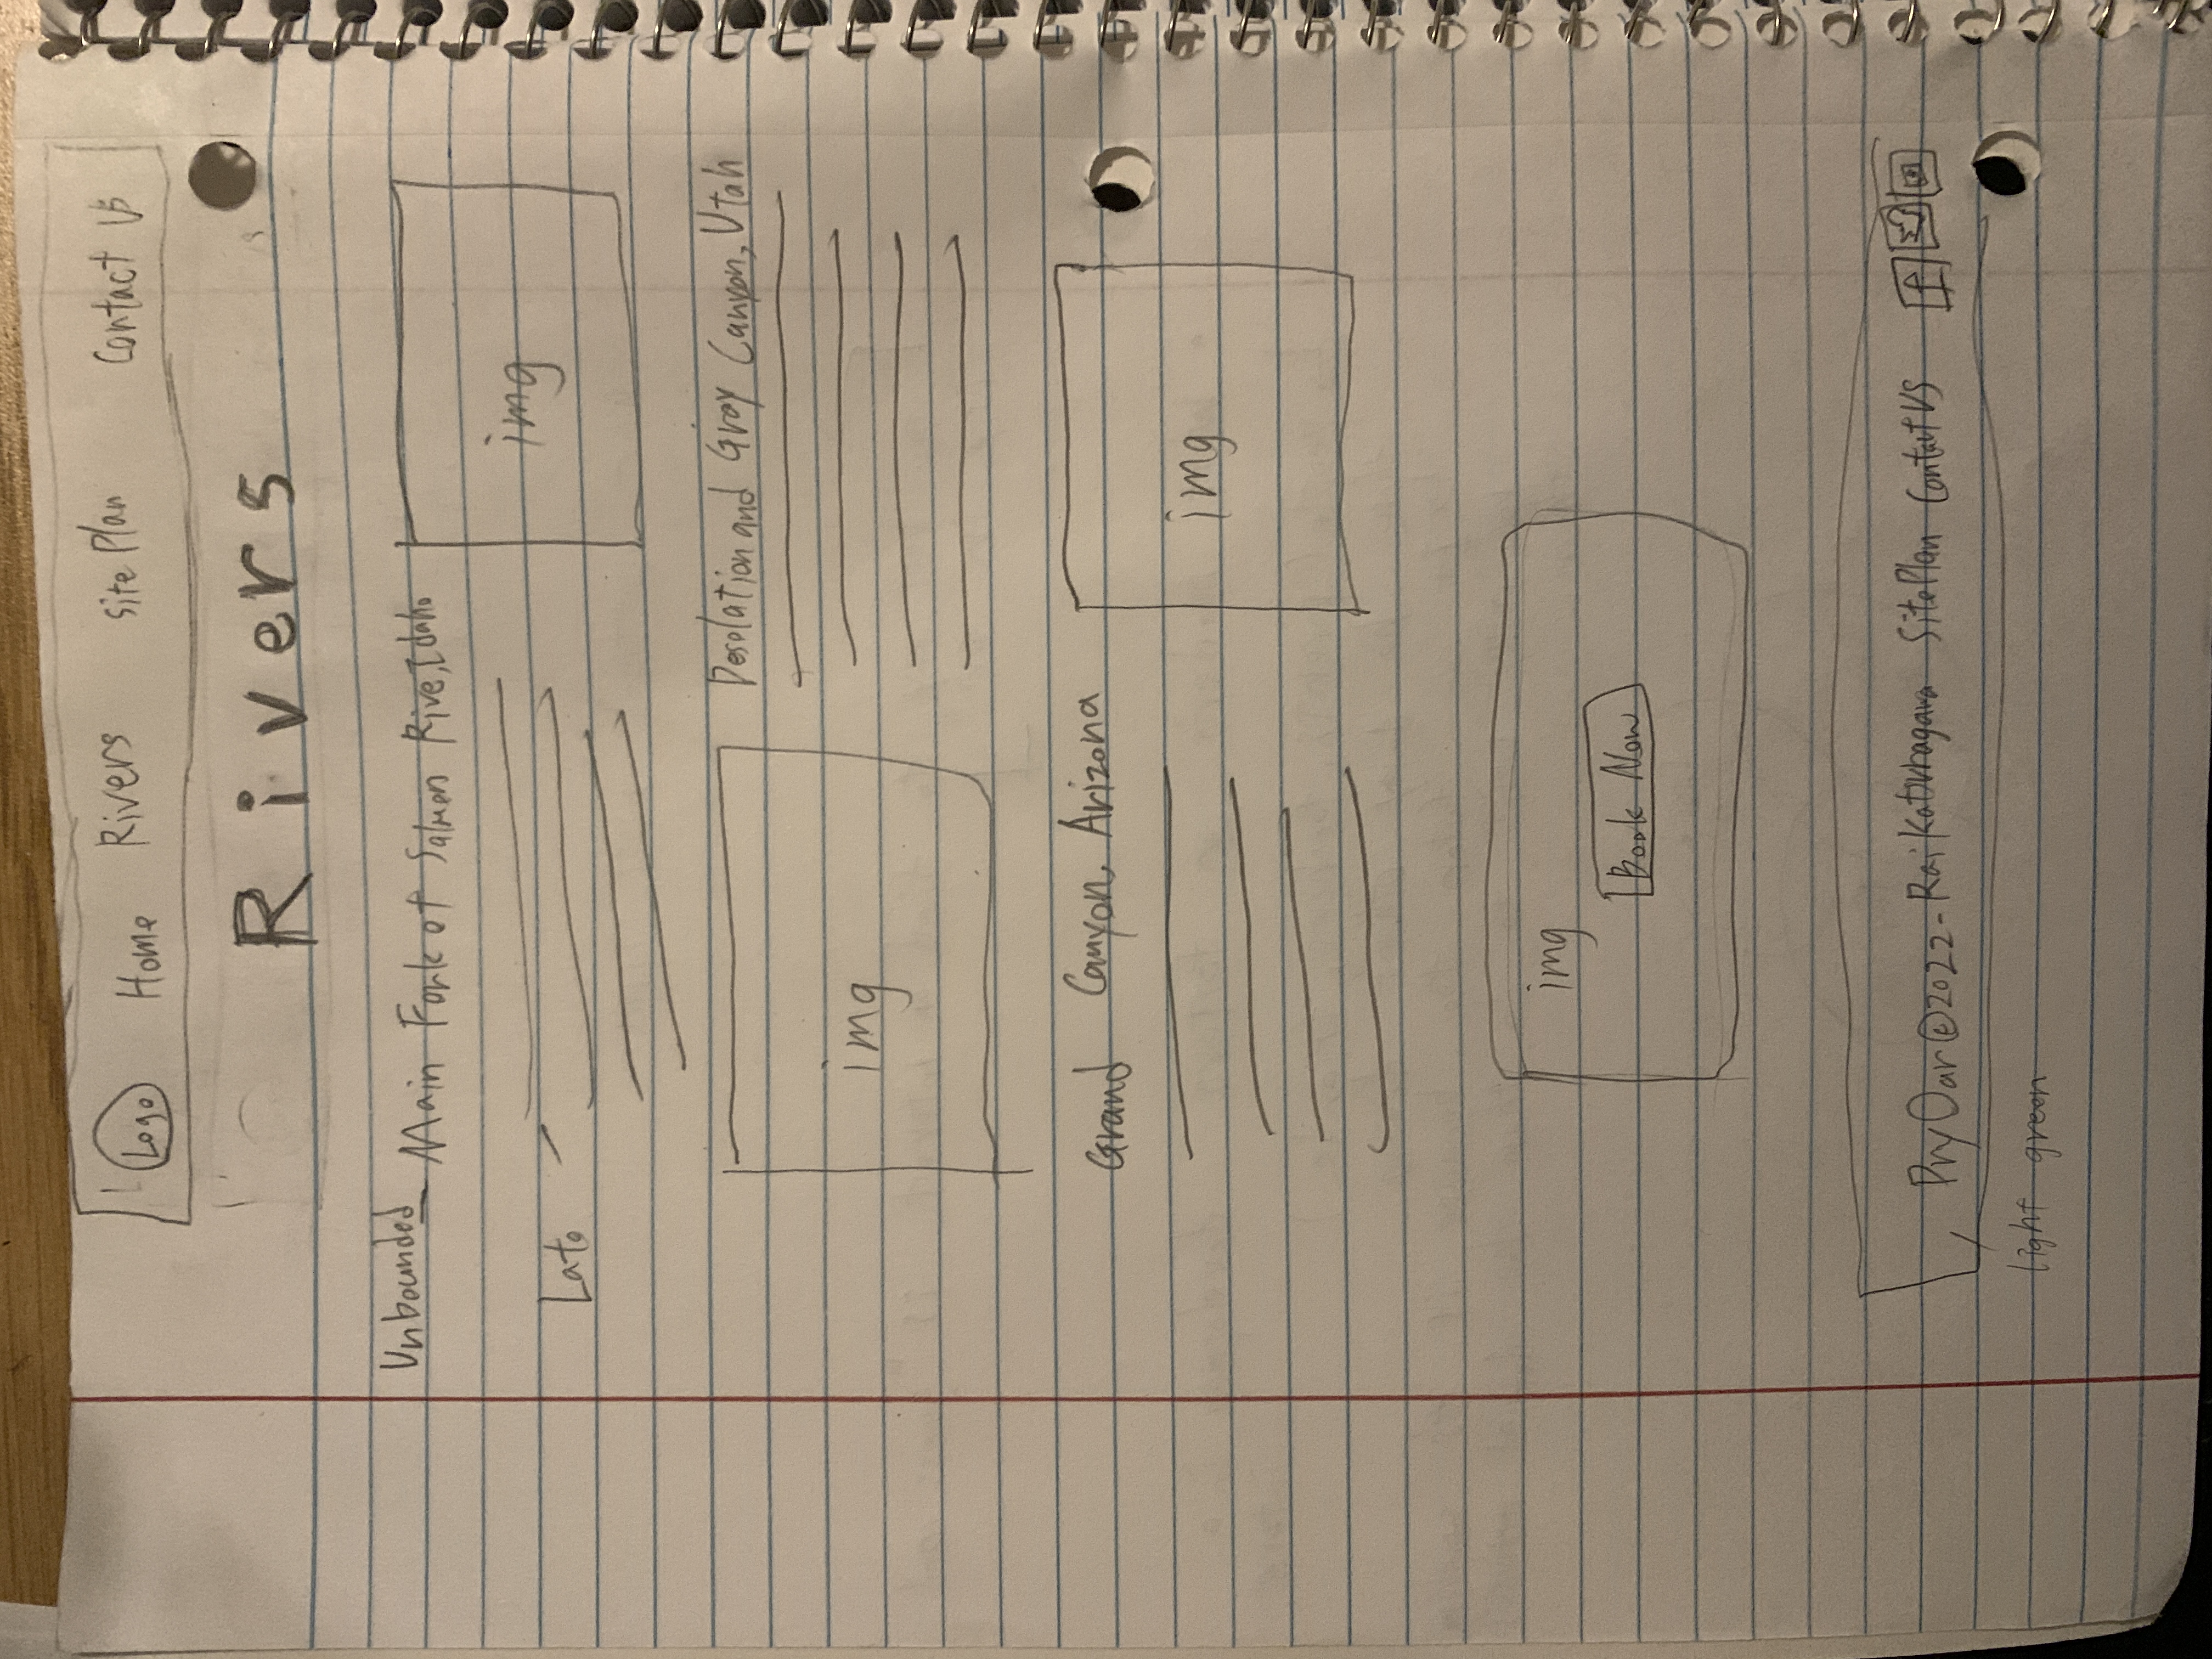 Logo Home Rivers Site Plan Contact Us
Rivers
Unbounded Main Fork of Salmon Rive, Idaho
img
Lato
Desolation and Gray Canyon, Utah
img
Grand Canyon, Arizona
img
img
Book Now
Pry Oar © 2022 - Rai Katsuragawa Site Plan Contact US f
light green